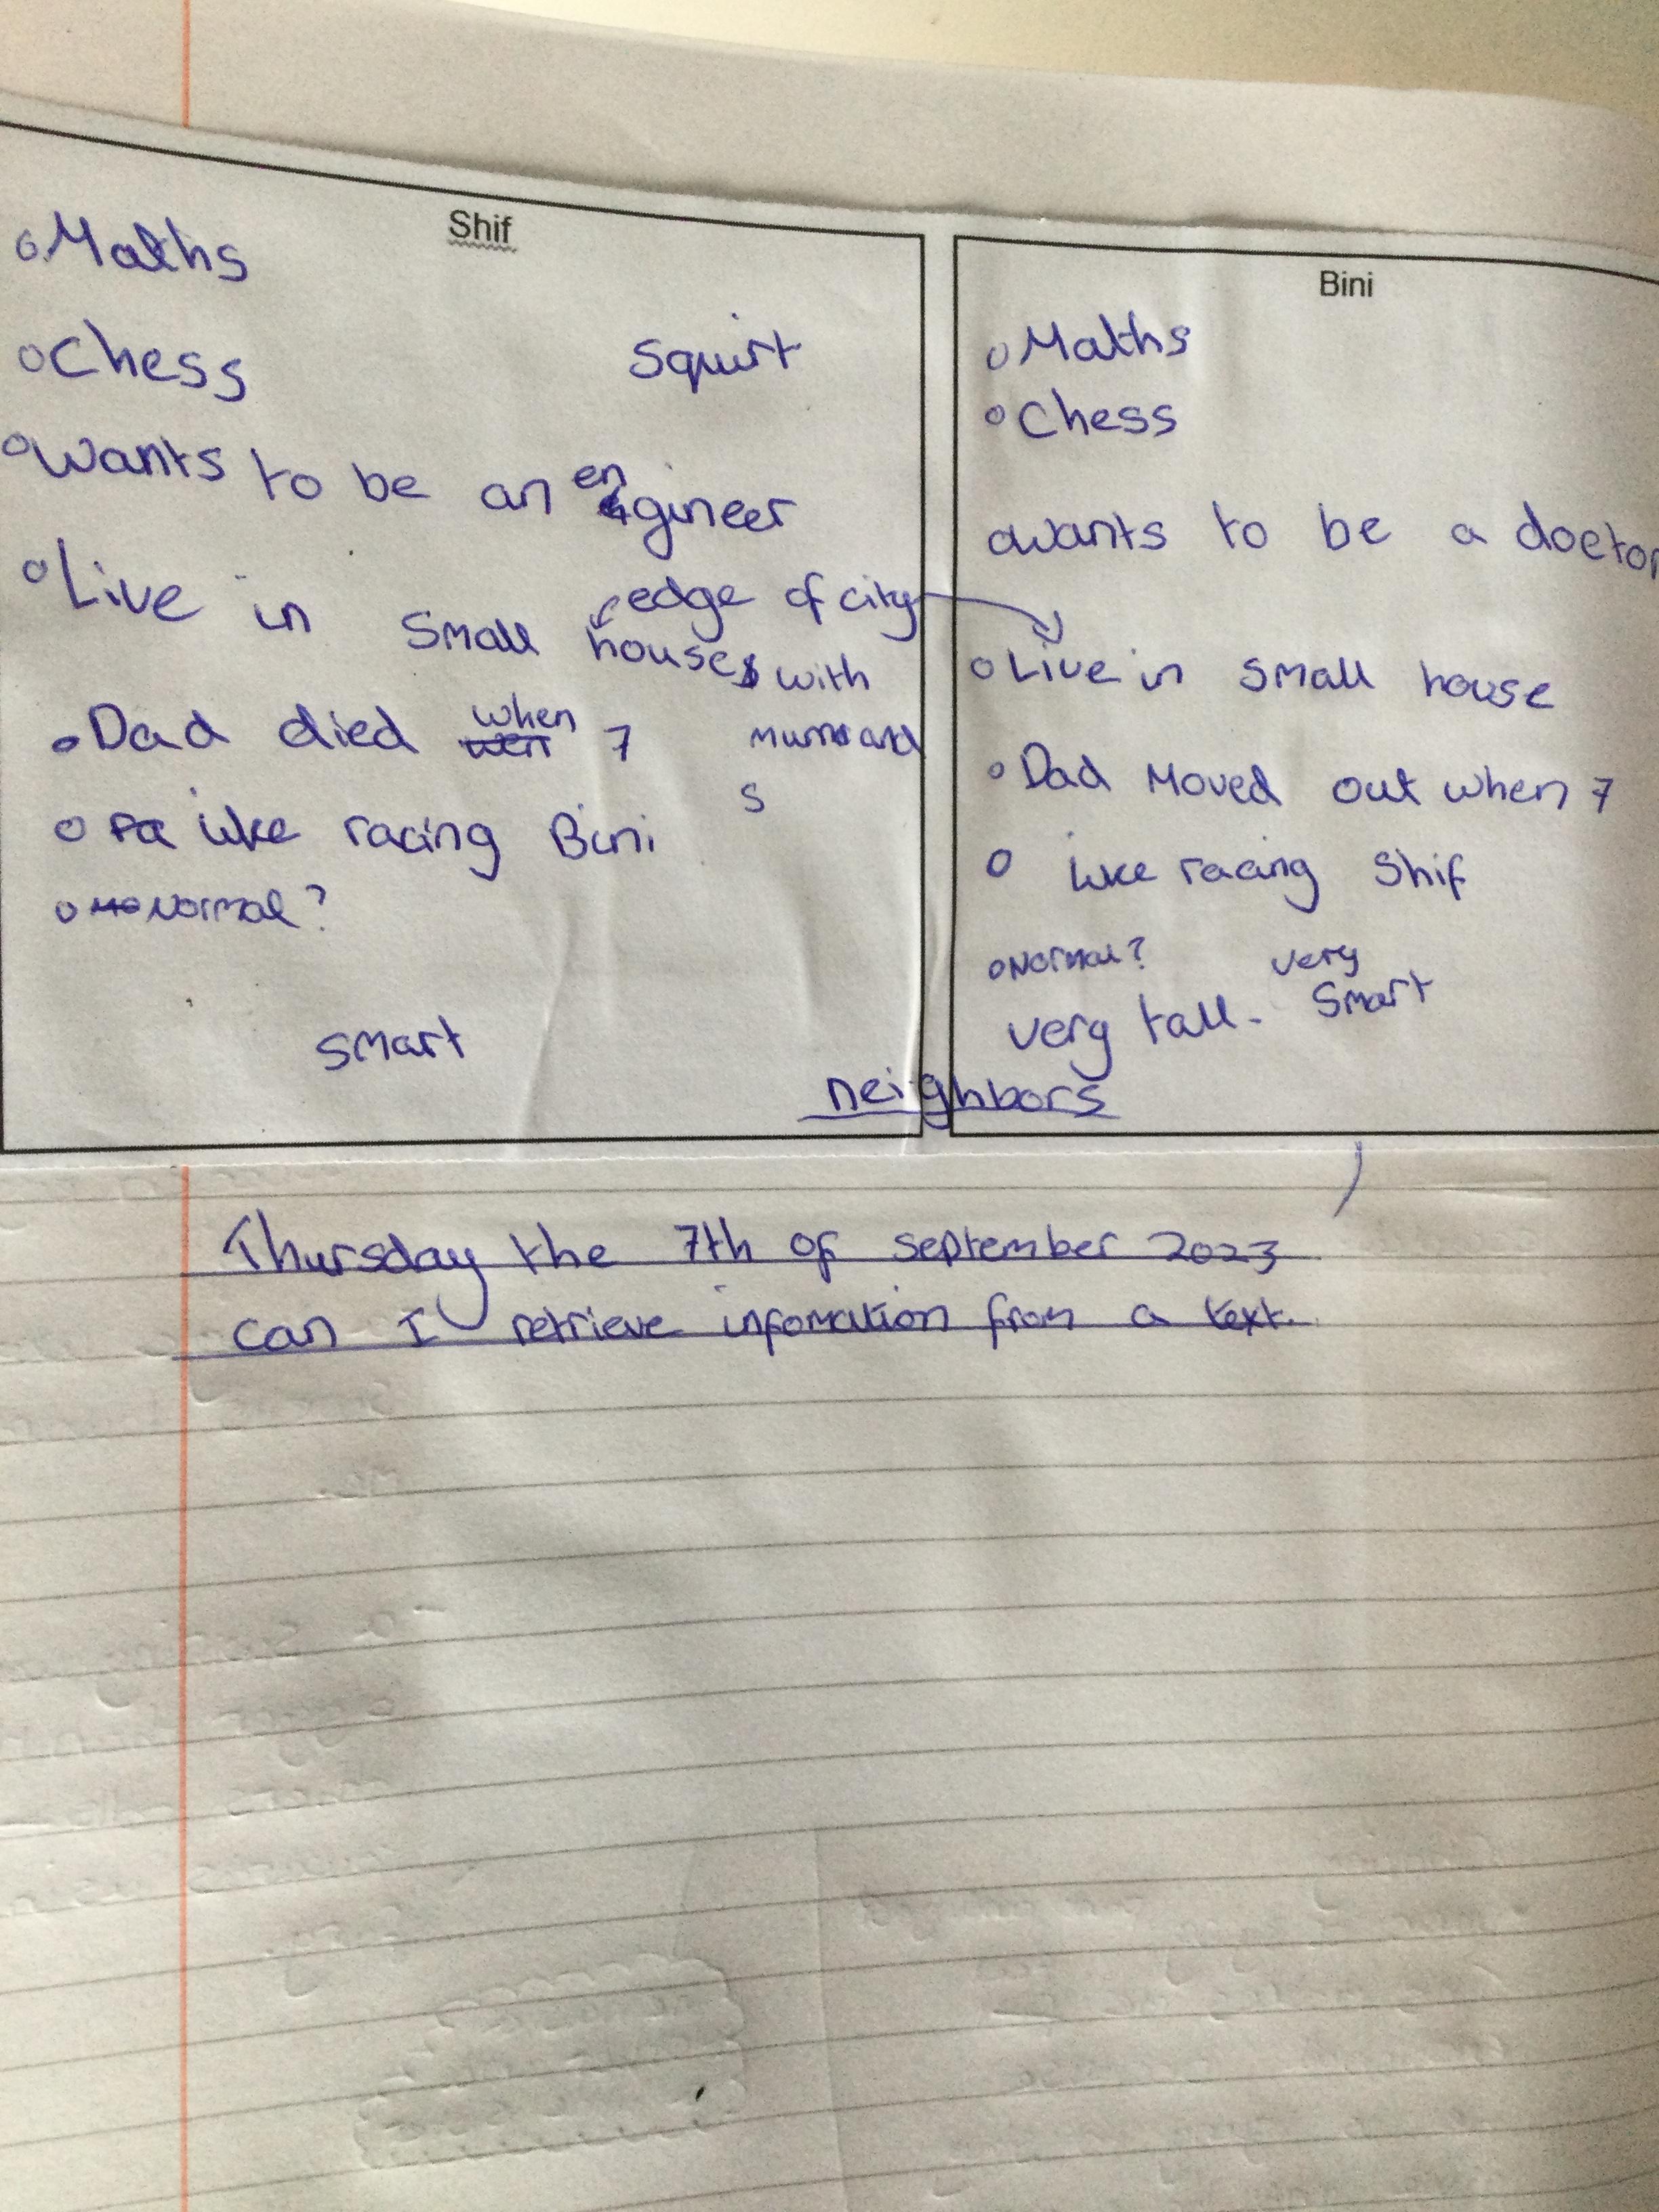 Shif
Maths
Chess
Squirt
Wants to be an engineer
edge of city
Live in small house with
mum and
s
Dad died when 7
like racing Bini
Normal?
smart
Bini
Maths
Chess
Wants to be a doctor
Live in small house
Dad Moved out when 7
like racing Shif
Normal?
very
Smart
very tall.
neighbors
Thursday the 7th of september 2023
can I retrieve infomation from a text.